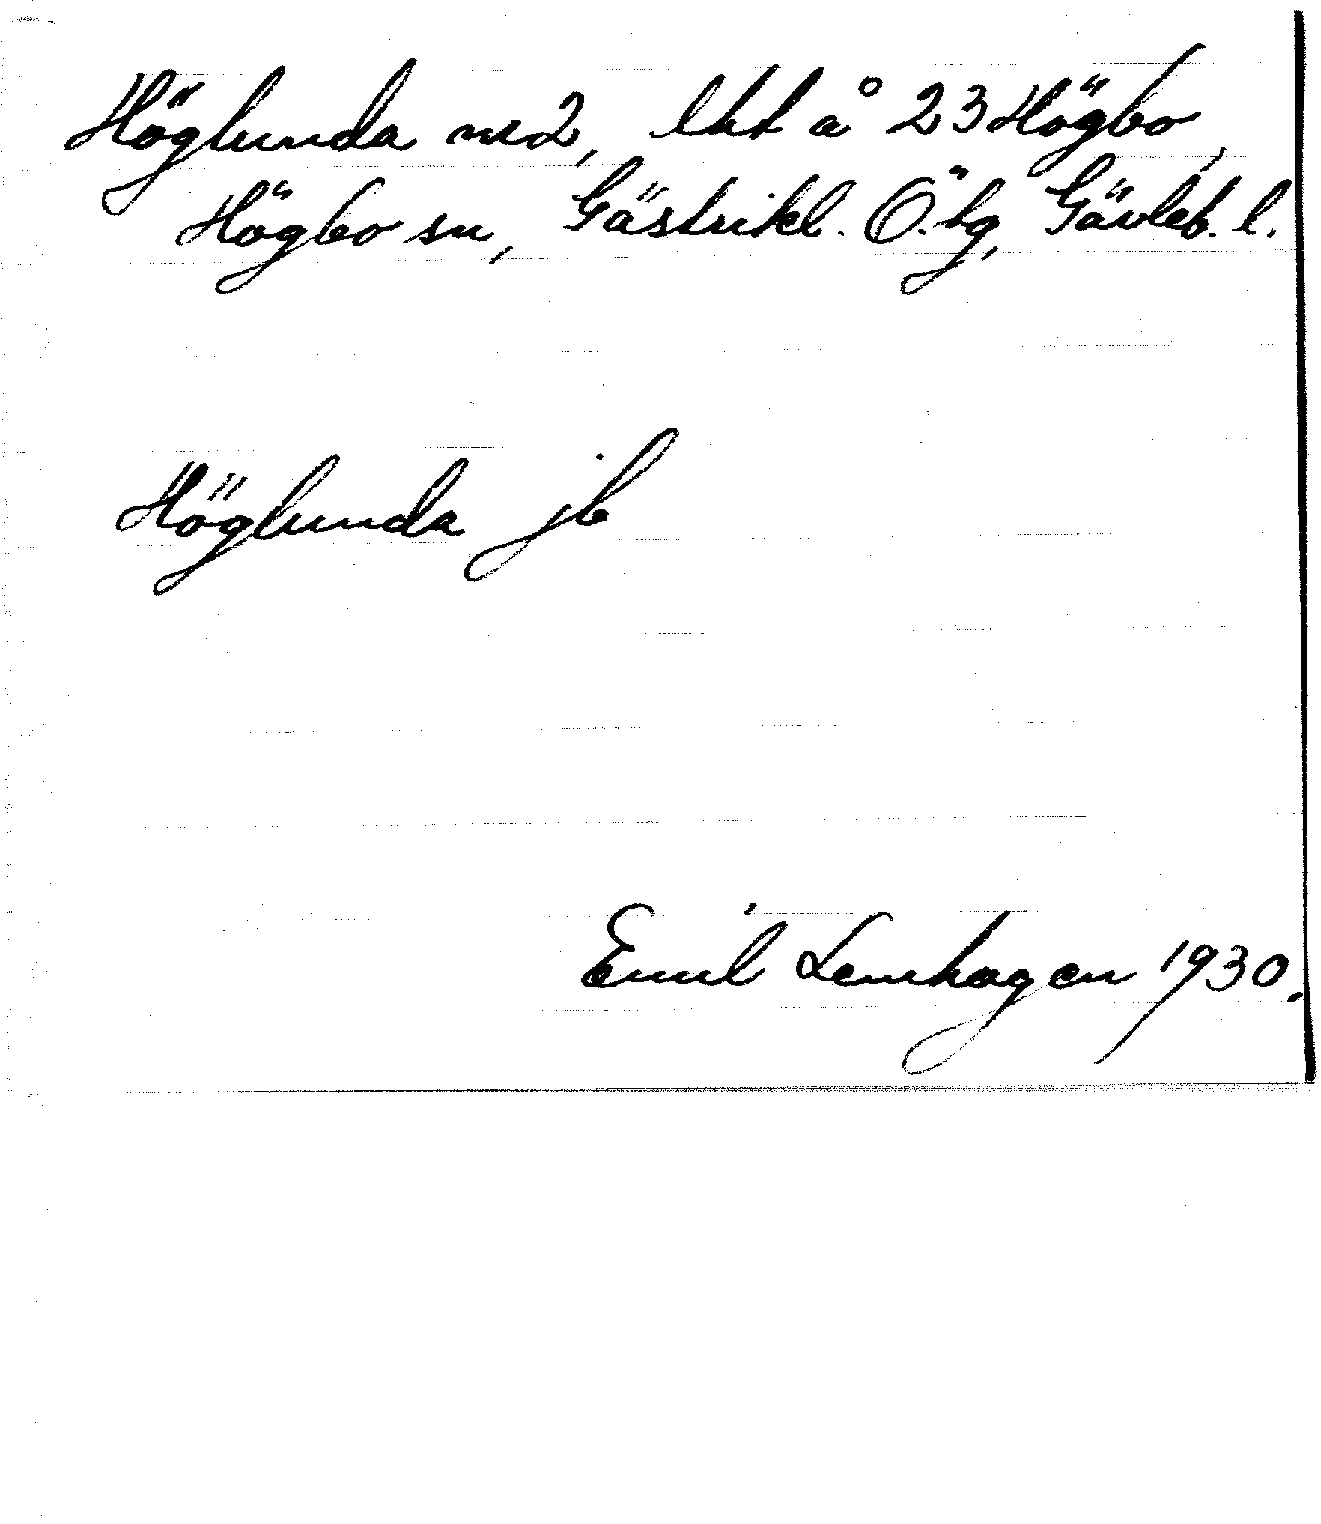 Höglunda nr 2, lht å 23 Högbo,
Högbo sn, Gästrikl. Ö. tg, Gävleb. l.
Höglunda jb
Emil Lenhagen 1930.